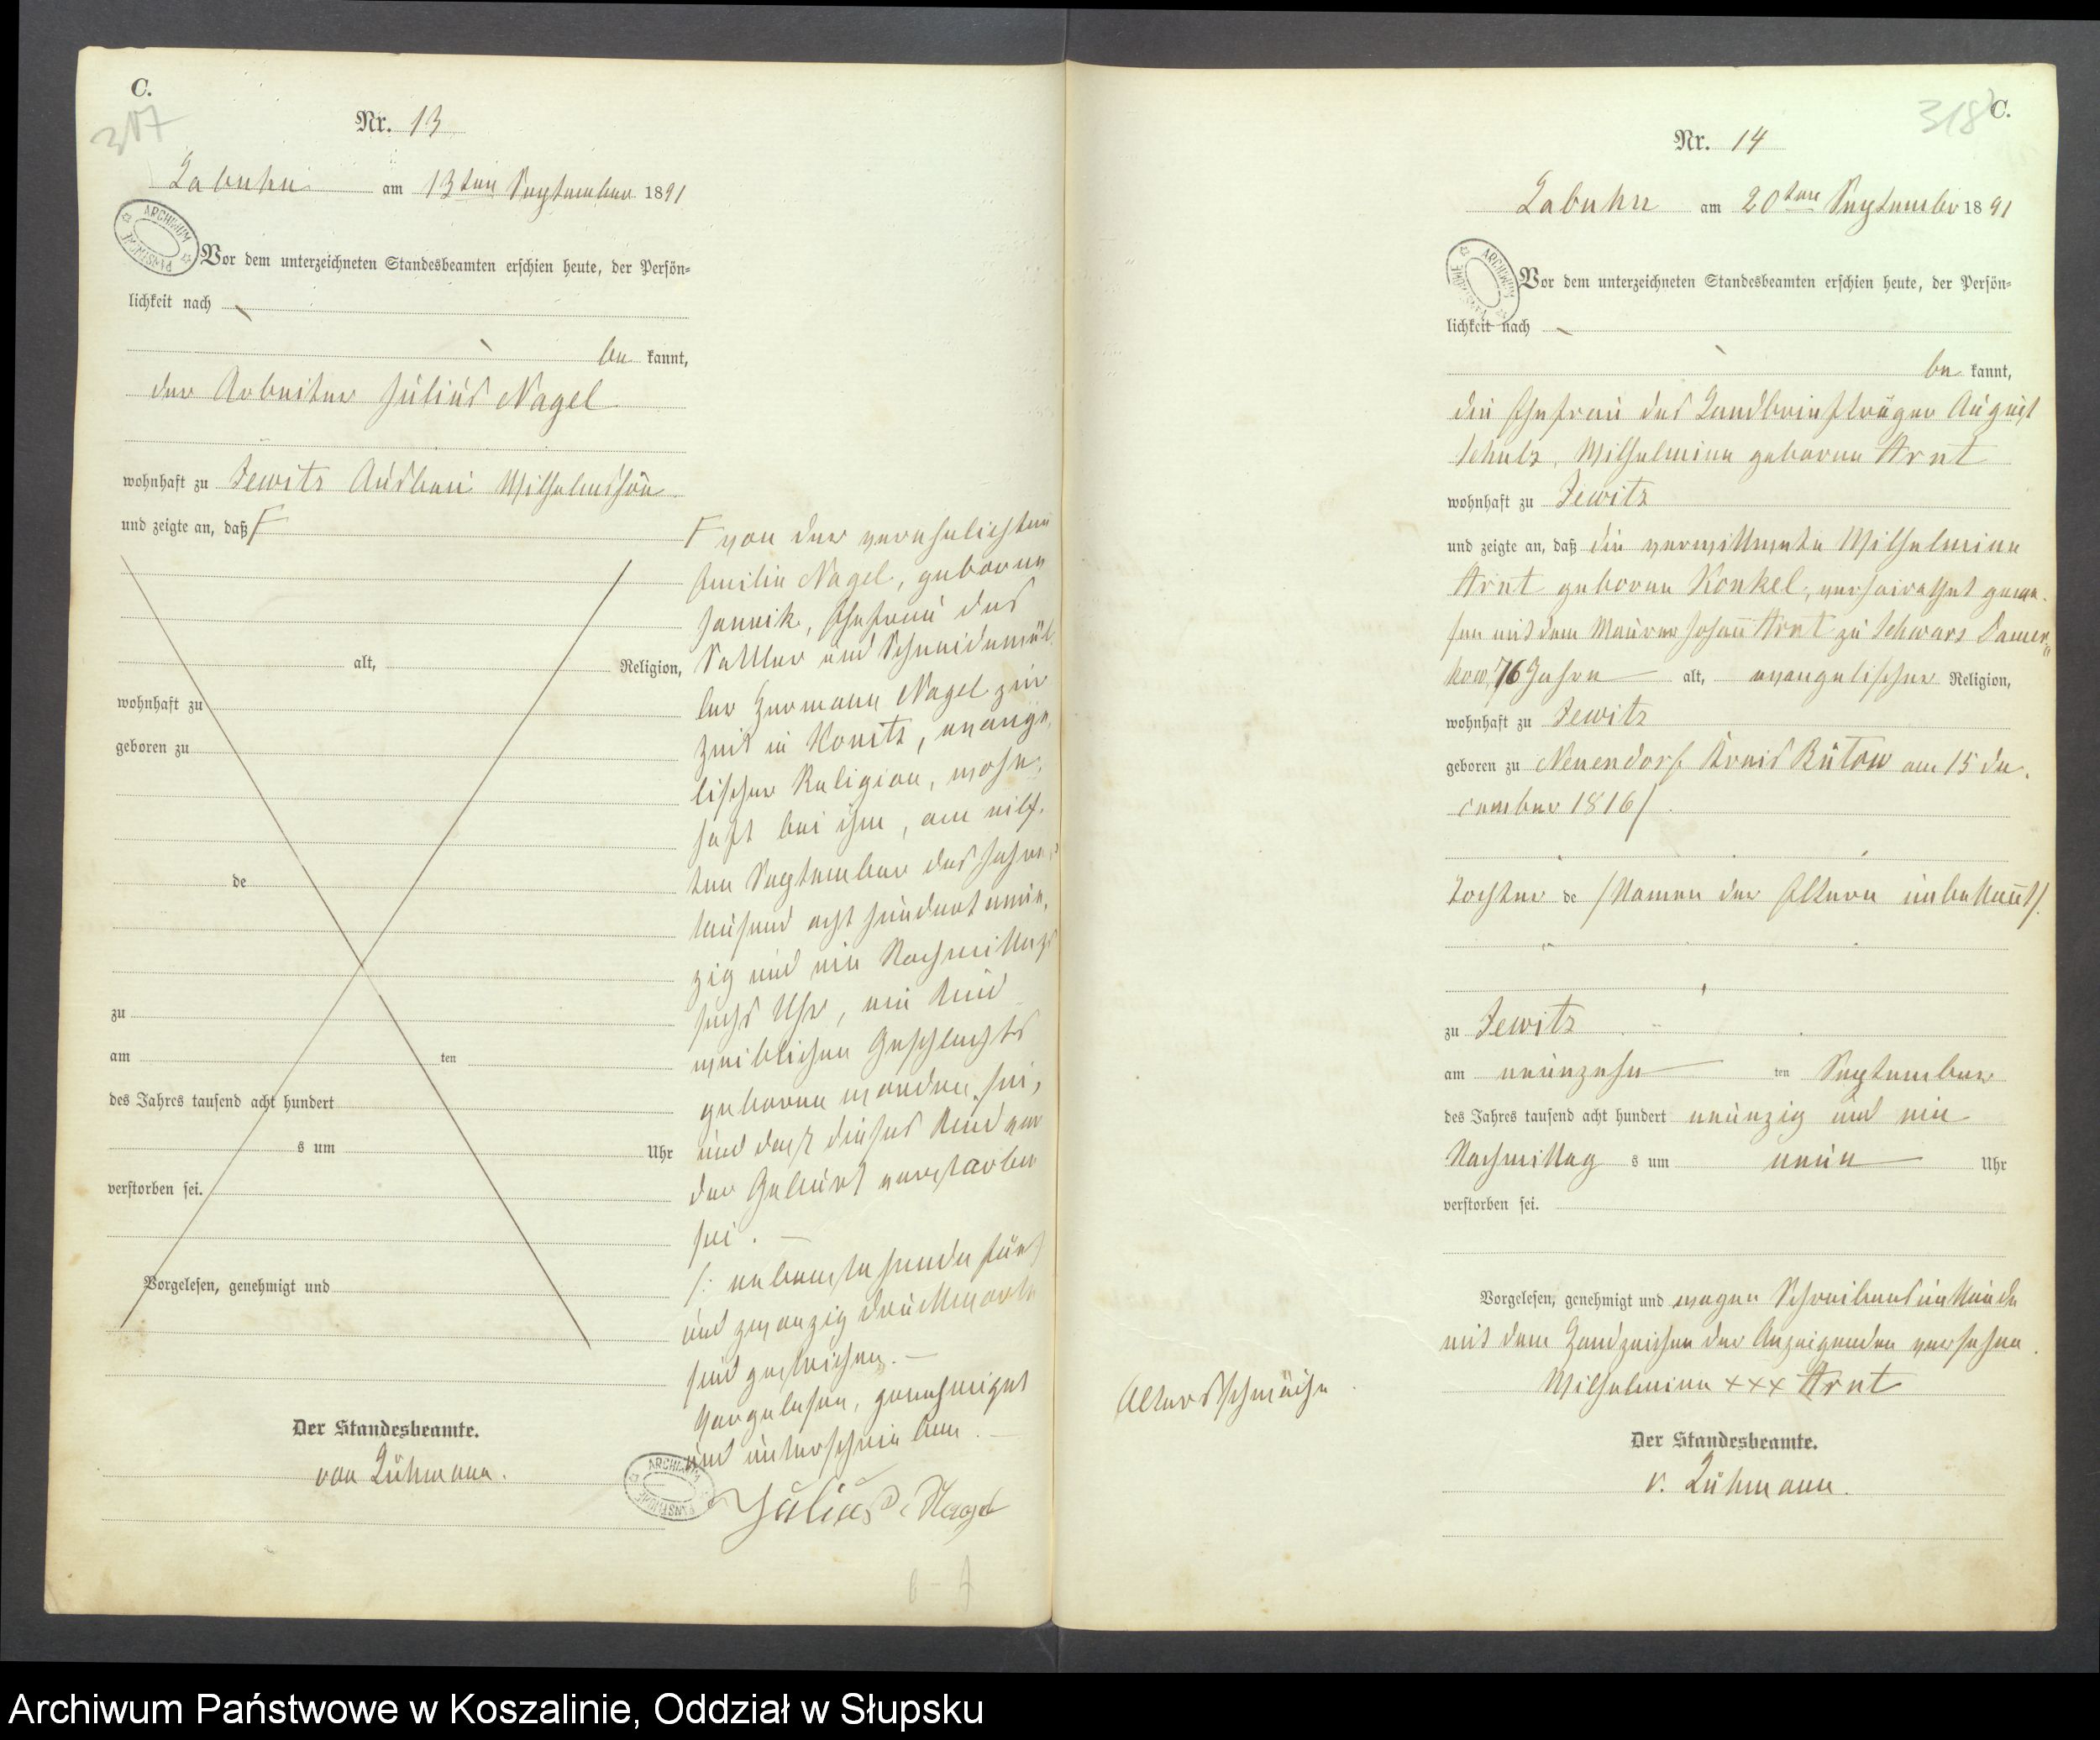 C.
317
Nr. 13
Labuhn am 13ten September 1891
ARCHIWUM PAŃSTWOWE
Vor dem unterzeichneten Standesbeamten erschien heute, der Persön-
lichkeit nach
be kannt,
der Arbeiter Julius Nagel
wohnhaft zu Jewitz Ausbau Wilhelmshöh
und zeigte an, daß F
alt, Religion,
wohnhaft zu
geboren zu
de
zu
am ten
des Jahres tausend acht hundert
s um Uhr
verstorben sei.
Vorgelesen, genehmigt und
Der Standesbeamte.
von Lühmann.
F von der verehelichten
Emilie Nagel, geborene
Jannik, Ehefrau des
Sattler und Schneidemül-
ler Hermann Nagel zur
Zeit in Konitz, evange-
lischer Religion, wohn-
haft bei ihm, am elf-
ten September des Jahres
tausend acht hundert neun-
zig und ein Nachmittags
sechs Uhr, ein Kind
weiblichen Geschlechts
geboren worden sei,
und daß dieses Kind vor
der Geburt verstorben
sei.
/: nebenstehende fünf
und zwanzig Druckworte
sind gestrichen.
Vorgelesen, genehmigt
und unterschrieben.
ARCHIWUM PAŃSTWOWE
Julius Nagel
C.
318
Nr. 14
Labuhn am 20ten September 1891
ARCHIWUM PAŃSTWOWE
Vor dem unterzeichneten Standesbeamten erschien heute, der Persön-
lichkeit nach
be kannt,
die Ehefrau des Landbriefträger August
Schulz, Wilhelmine geborne Arnt
wohnhaft zu Jewitz
und zeigte an, daß die verwittwete Wilhelmine
Arnt geborne Konkel, verheirathet gewe-
sen mit dem Maurer Johann Arnt zu Schwarz Damer-
kow, 76 Jahre alt, evangelischer Religion,
wohnhaft zu Jewitz
geboren zu Neuendorf Kreis Bütow am 15 De-
cember 1816/
Tochter de /Namen der Eltern unbekannt/.
zu Jewitz
am neunzehn ten September
des Jahres tausend acht hundert neunzig und ein
Nachmittag s um neun Uhr
verstorben sei.
Vorgelesen, genehmigt und wegen Schreibensunkunde
mit dem Handzeichen der Anzeigenden versehen.
Wilhelmine xxx Arnt
Altersschwäche
Der Standesbeamte.
v. Lühmann.
Archiwum Państwowe w Koszalinie, Oddział w Słupsku